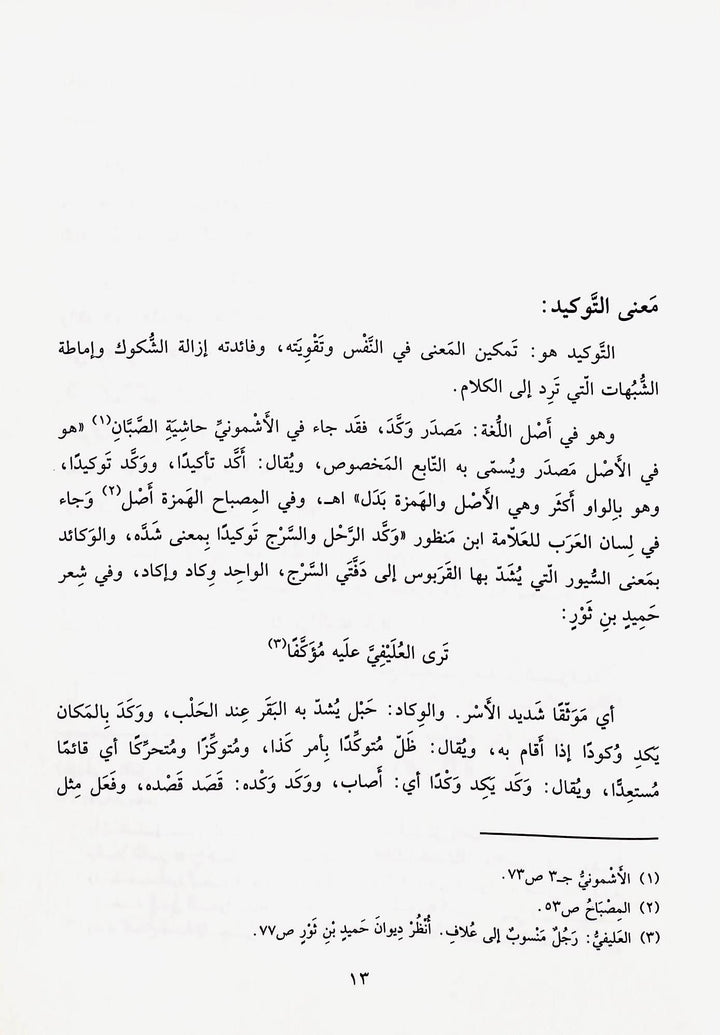 مَعنى التَّوكيد:
التَّوكيد هو: تَمكين المَعنى في النَّفْس وتَقْوِيَته، وفائدته إزالة الشُّكوك وإماطة
الشُّبُهات الّتي تَرِد إلى الكلام.
وهو في أَصْل اللُّغة: مَصدَر وَكَّدَ، فقَد جاء في الأَشْمونيِّ حاشِيَةِ الصَّبَّانِ(١) «هو
في الأَصْل مَصدَر ويُسمّى به التّابع المَخصوص، ويُقال: أَكَّد تأكيدًا، ووَكَّد تَوكيدًا،
وهو بالِواو أَكثَر وهي الأَصْل والهَمزة بَدَل» اهـ، وفي المِصباح الهَمزة أَصْل(٢) وَجاء
في لِسان العَرَب للعَلّامة ابن مَنظور «وَكَّد الرَّحْل والسَّرْج تَوكيدًا بِمعنى شَدَّه، والوَكائد
بمَعنى السُّيور الّتي يُشَدّ بها القَرَبوس إلى دَفَّتَي السَّرْج، الواحِد وِكاد وإكاد، وفي شِعر
حَمِيدٍ بنِ ثَوْرٍ:
تَرى العُلَيْفِيَّ علَيه مُؤَكَّفًا(٣)
أي مَوَثّقًا شَديد الأَسْر. والوِكاد: حَبْل يُشدّ به البَقَر عِند الحَلْب، ووَكَدَ بِالمَكان
يَكدِ وُكودًا إذا أَقام به، ويُقال: ظَلّ مُتوكّدًا بِأمر كَذا، ومُتوكِّزًا ومُتحرِّكًا أي قائمًا
مُستعِدًّا، ويُقال: وَكَد يَكِد وَكْدًا أي: أَصاب، ووَكَد وَكْده: قَصَد قَصْده، وفَعَل مِثل
(١) الأَشْمونيُّ جـ٣ ص٧٣.
(٢) المِصْبَاحُ ص٥٣.
(٣) العَليفيُّ: رَجُلٌ مَنْسوبٌ إلى عُلافٍ. اُنْظُرْ دِيوانَ حَميدٍ بْنِ ثَوْرٍ ص٧٧.
١٣